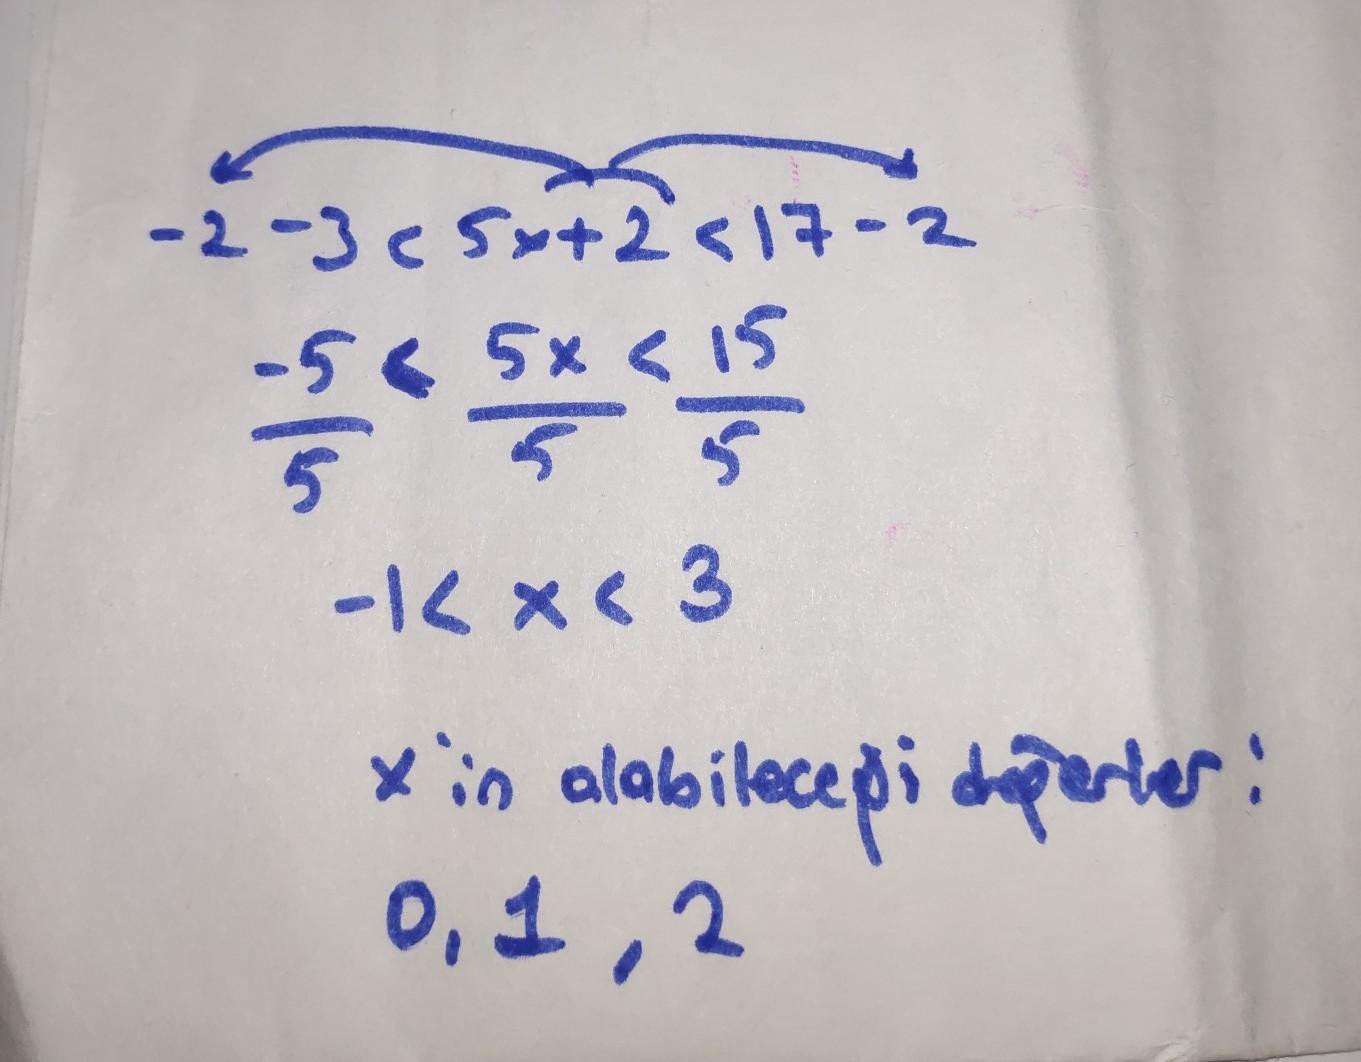 -2 -3 < 5x+2 < 17 - 2
-5 < 5x < 15
5 5 5
-1 < x < 3
x'in alabileceği değerler :
0, 1 , 2